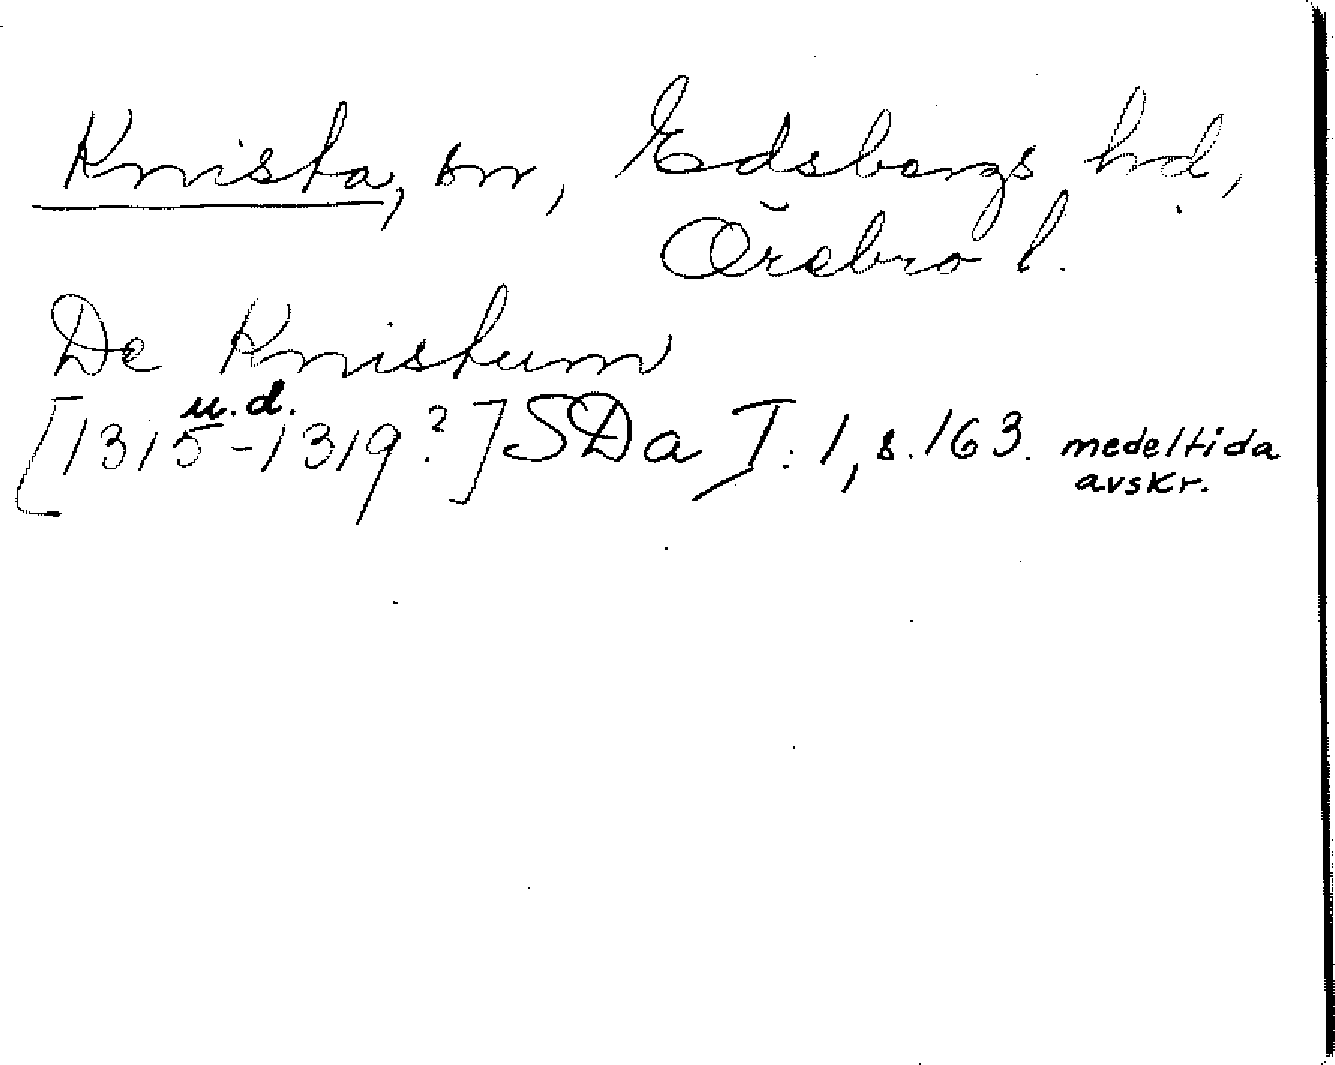 Knista, sn, Edsbergs hd,
Örebro l.
De Knistum
u.d.
[1315-1319?] SDa I:1, s. 163. medeltida
avskr.